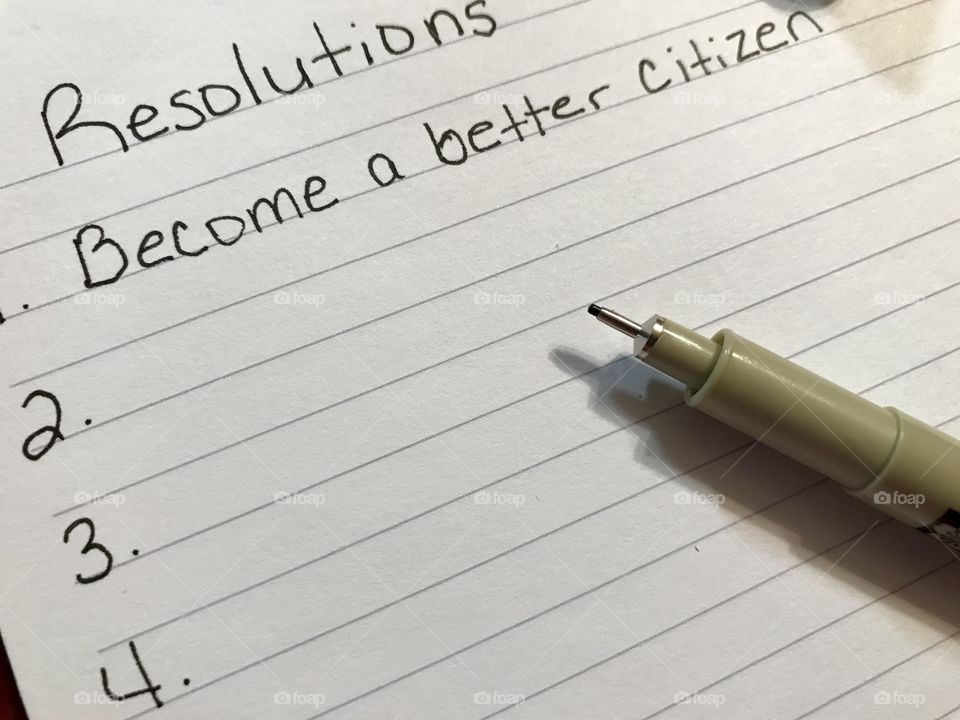 Resolutions
1. Become a better citizen
2.
3.
4.